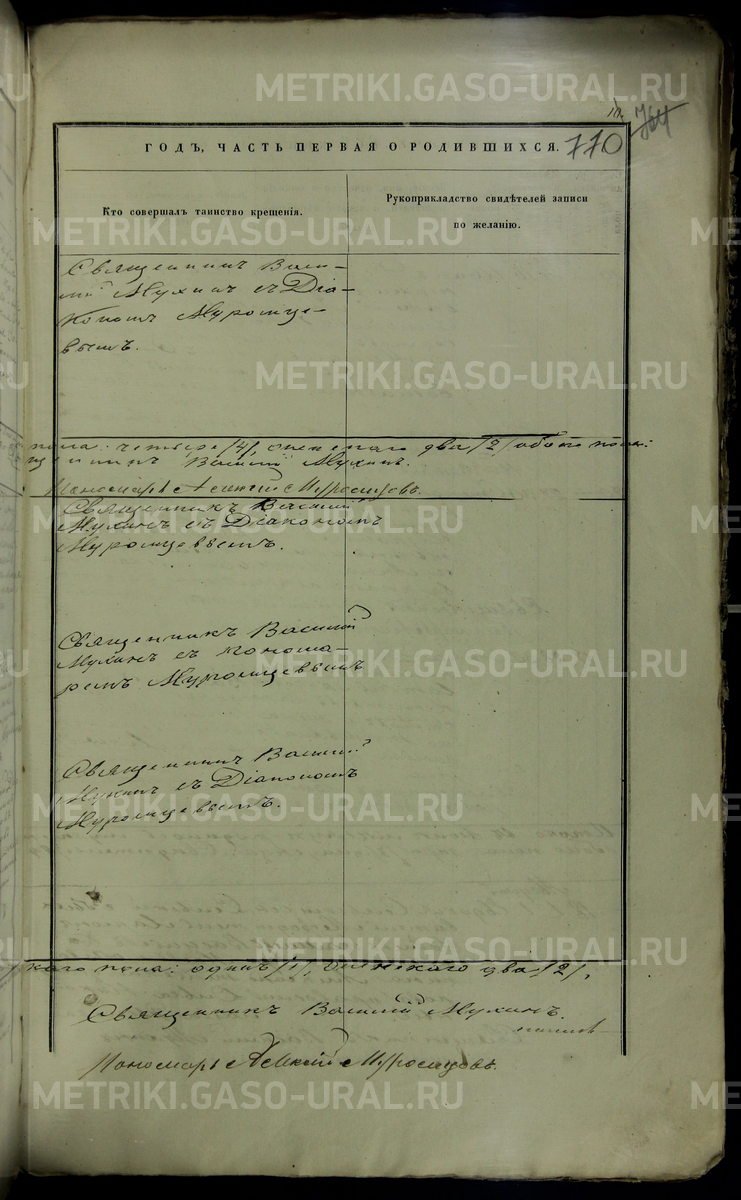 METRIKI.GASO-URAL.RU
770
764
ГОДЪ, ЧАСТЬ ПЕРВАЯ О РОДИВШИХСЯ.
Кто совершалъ таинство крещенія.
Рукоприкладство свидѣтелей записи
по желанію.
Священникъ Васи-
лій Мухинъ съ Діа-
кономъ Муромце-
вымъ.
пола: четыре /4/, женскаго два /2/ обоего пола:
щенникъ Василій Мухинъ.
Пономарь Алексій Муромцовъ.
Священникъ Василій
Мухинъ съ Діакономъ
Муромцевымъ.
Священникъ Василій
Мухинъ съ понома-
ремъ Муромцевымъ
Священникъ Василій
Мухинъ съ Діакономъ
Муромцевымъ.
скаго пола: одинъ /1/, женскаго два /2/,
Священникъ Василій Мухинъ.
Пономарь Алексій Муромцовъ.